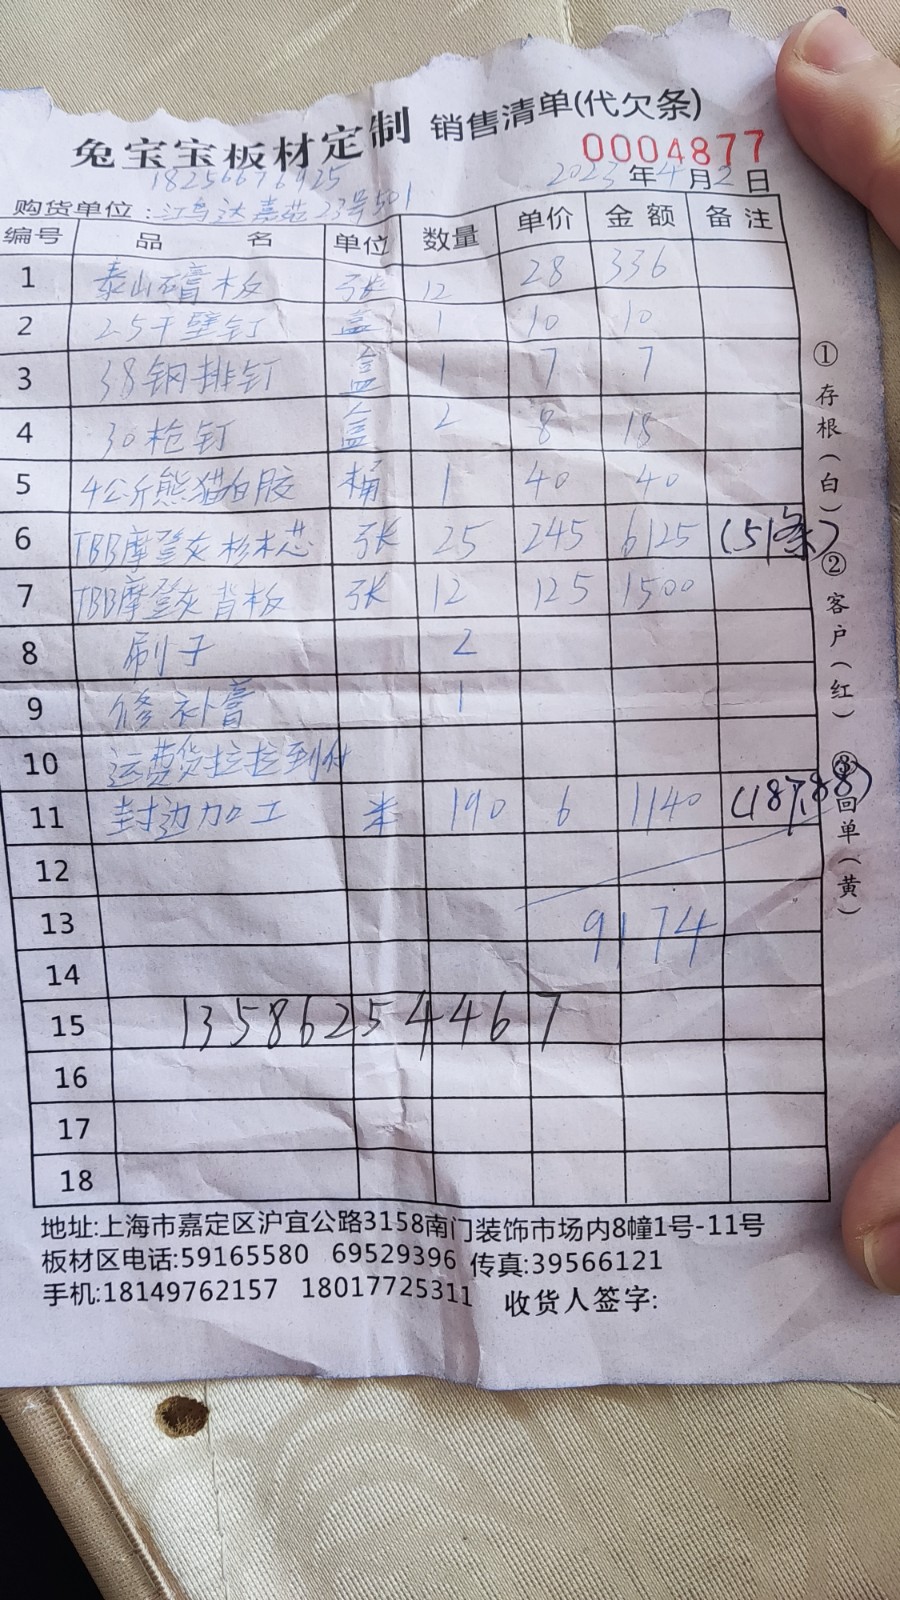 兔宝宝板材定制 销售清单(代欠条)
0004877
18256676925 2023年4月2日
购货单位:江鸟达嘉苑23号501
编号 品 名 单位 数量 单价 金额 备注
1 泰山石膏板 张 12 28 336
2 25干壁钉 盒 1 10 10
3 38钢排钉 盒 1 7 7
4 30枪钉 盒 2 8 18
5 4公斤熊猫白胶 桶 1 40 40
6 TBB摩登灰杉木芯 张 25 245 6125 (51条)
7 TBB摩登灰背板 张 12 125 1500
8 刷子 2
9 修补膏 1
10 运费货拉拉到付
11 封边加工 米 190 6 1140 (187.88)
12
13 9174
14
15 13586254467
16
17
18
①存根(白)②客户(红)③回单(黄)
地址:上海市嘉定区沪宜公路3158南门装饰市场内8幢1号-11号
板材区电话:59165580 69529396 传真:39566121
手机:18149762157 18017725311 收货人签字: